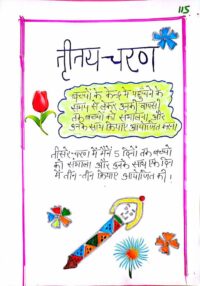 115
तृतीय-चरण
बच्चों के केन्द्र में पहुंचने के
समय से लेकर उनकी वापसी
तक बच्चों को संभालना, और
उनके साथ क्रियाएं आयोजित करना
तीसरे-चरण में मैंने 5 दिनों तक बच्चों
को संभाला और उनके साथ एक दिन
में तीन-तीन क्रियाएं आयोजित की।